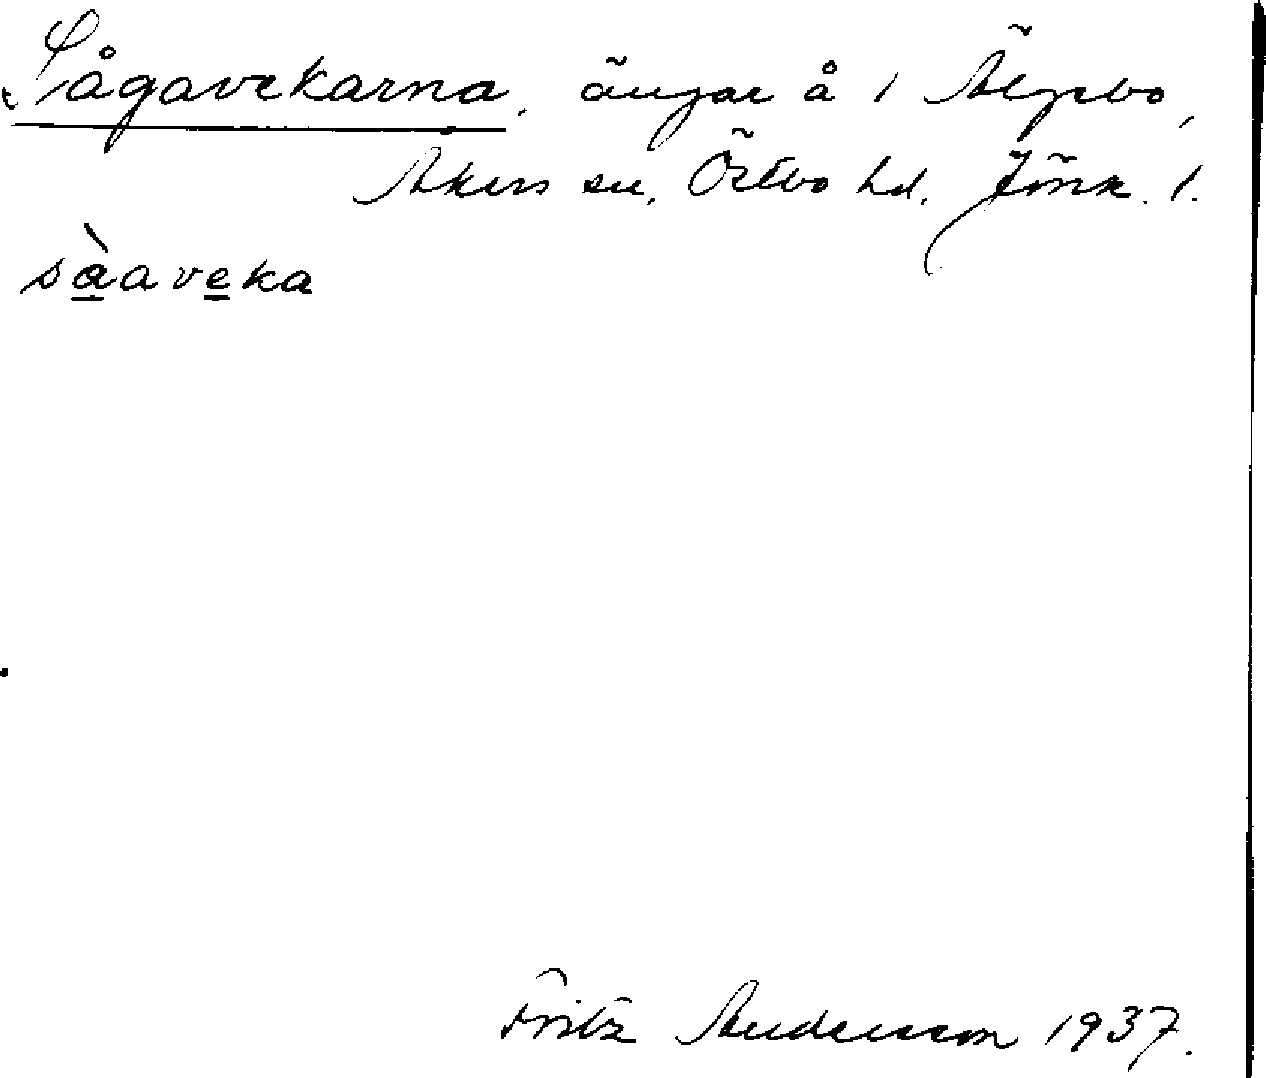 Sågavekarna, ängar å 1 Älgebo,
Åkers sn, Östbo hd. Jönk. l.
sàaveka
Fritz Andersson 1937.